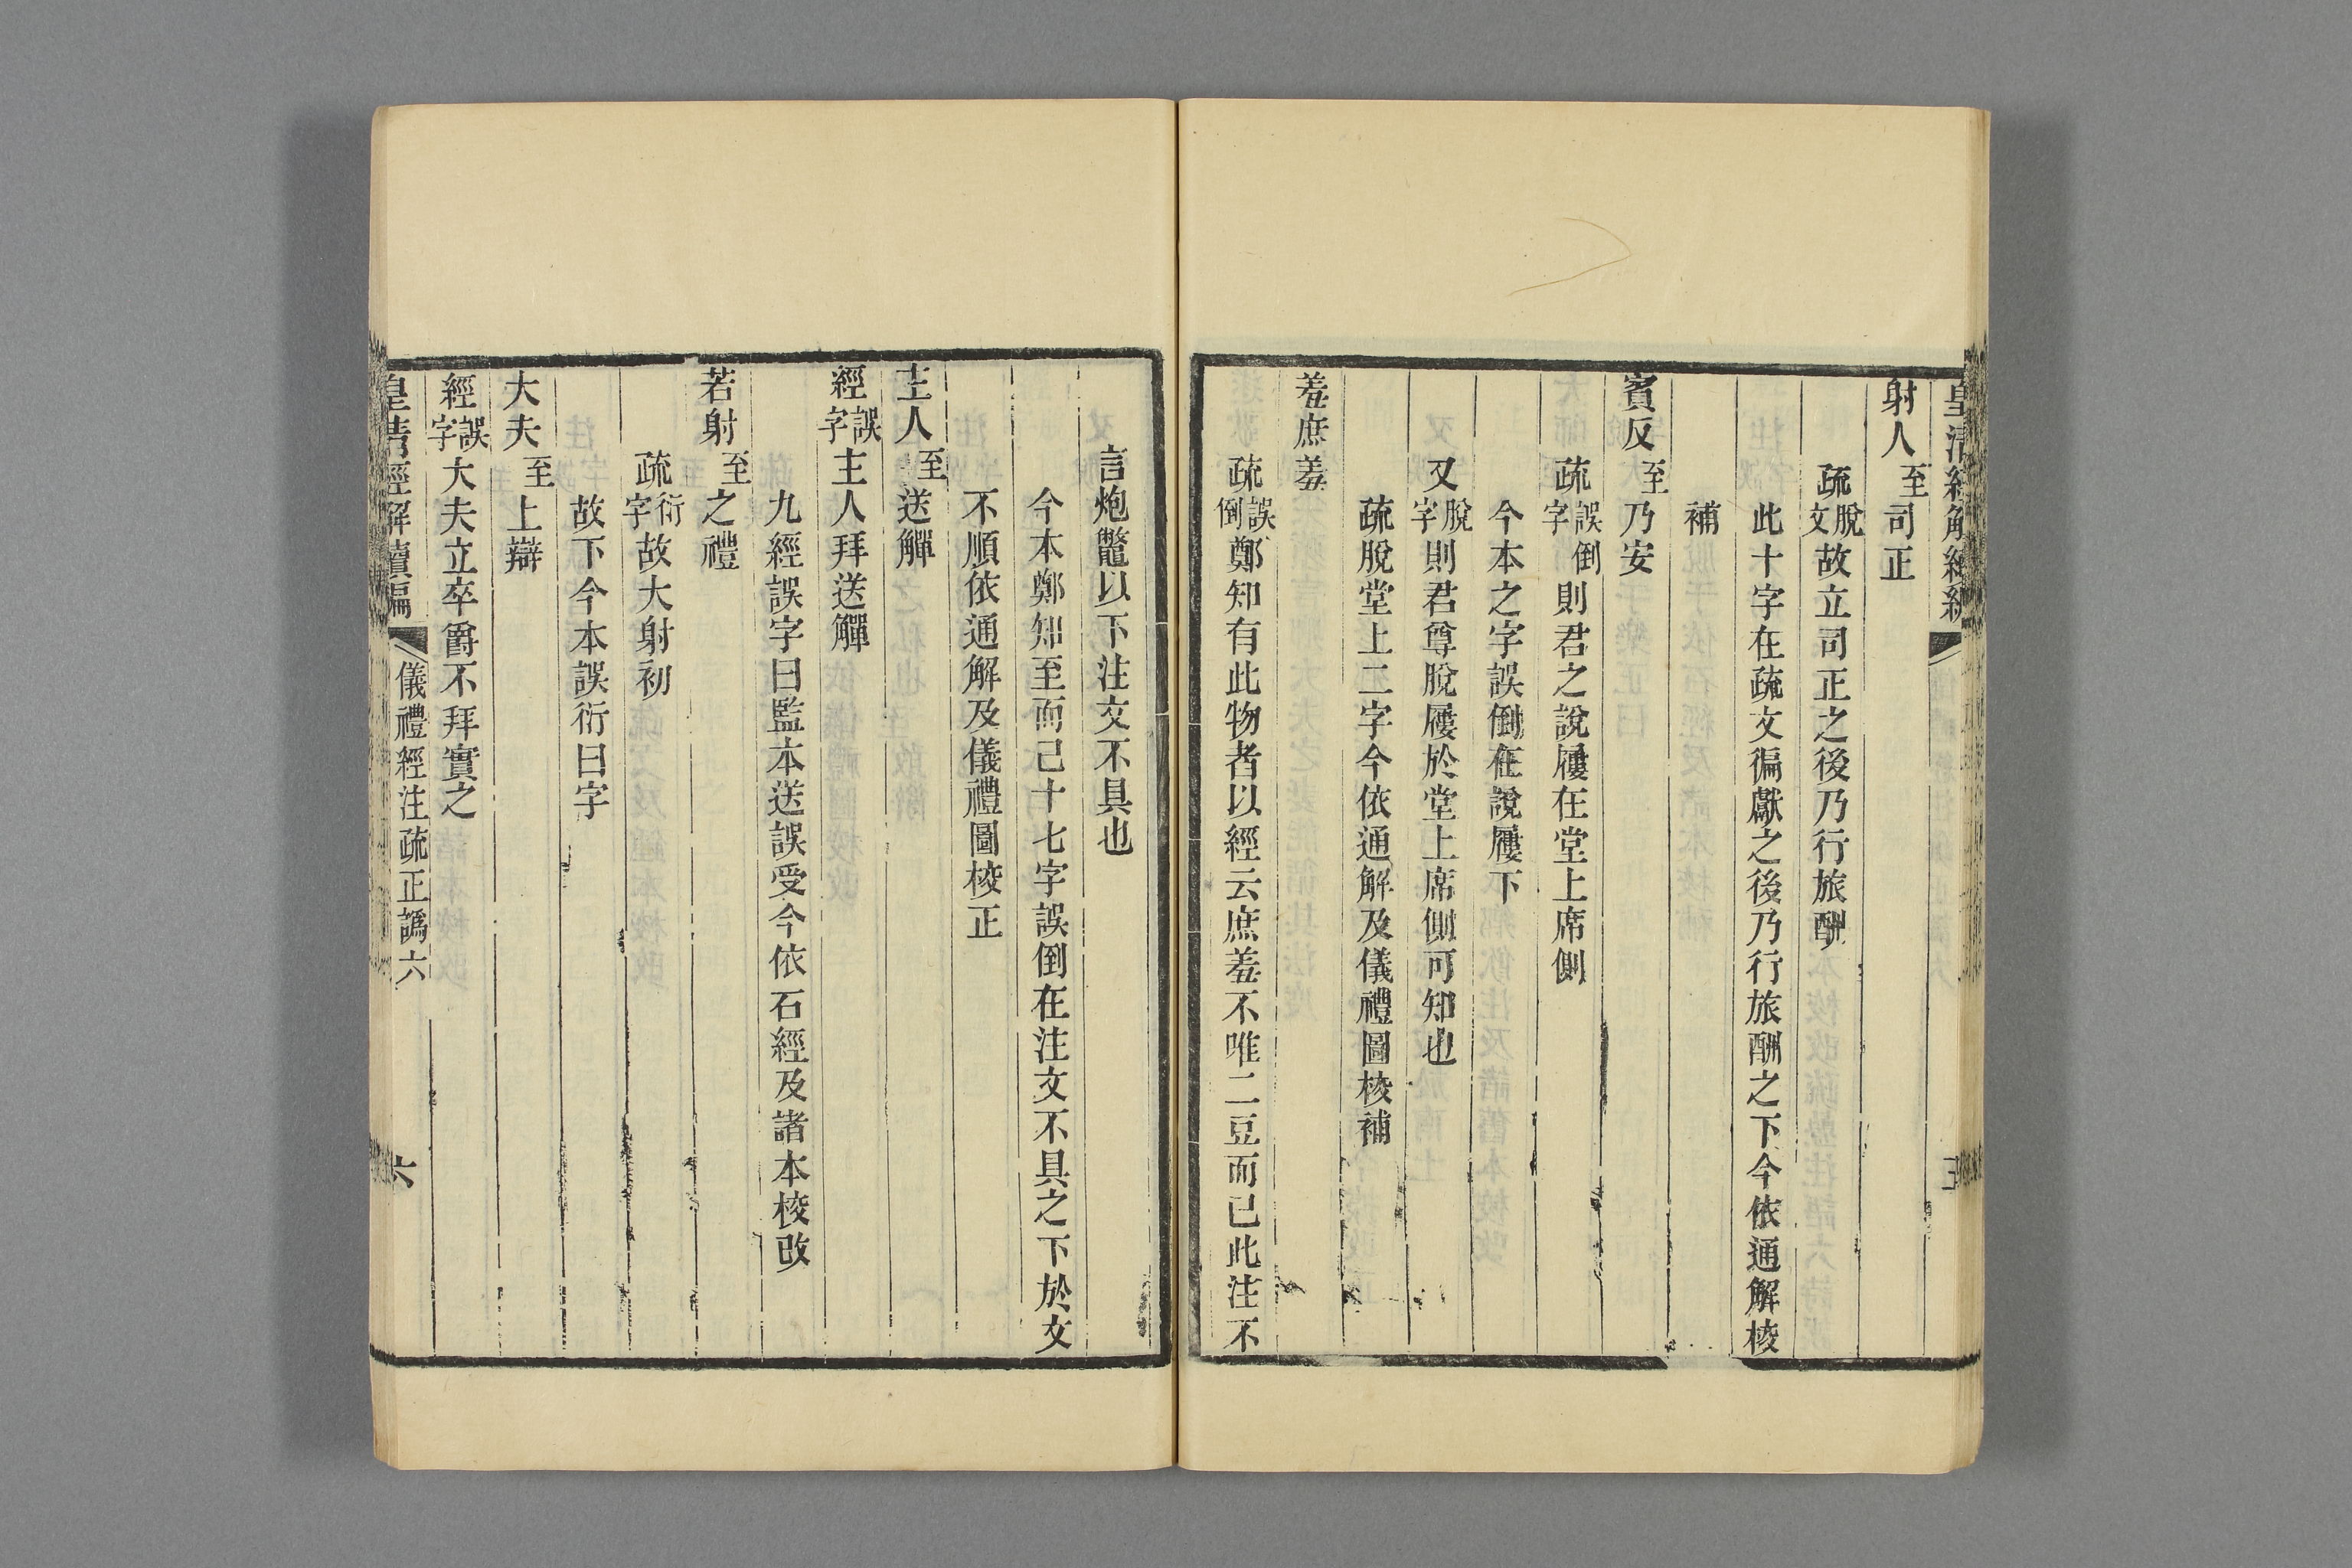 射人至司正
疏脫文故立司正之後乃行旅酬
此十字在疏文徧獻之後乃行旅酬之下今依通解校
補
賓反至乃安
疏誤字倒則君之說屨在堂上席側
今本之字誤倒在說屨下
又脫字則君尊脫屨於堂上席側可知也
疏脫堂上二字今依通解及儀禮圖校補
羞庶羞
疏誤倒鄭知有此物者以經云庶羞不唯二豆而已此注不
言炮鼈以下注文不具也
今本鄭知至而已十七字誤倒在注文不具之下於文
不順依通解及儀禮圖校正
主人至送觶
經誤字主人拜送觶
九經誤字曰監本送誤受今依石經及諸本校改
若射至之禮
疏衍字故大射初
故下今本誤衍曰字
大夫至上辯
經誤字大夫立卒爵不拜實之
皇清經解續編
儀禮經注疏正譌六
六